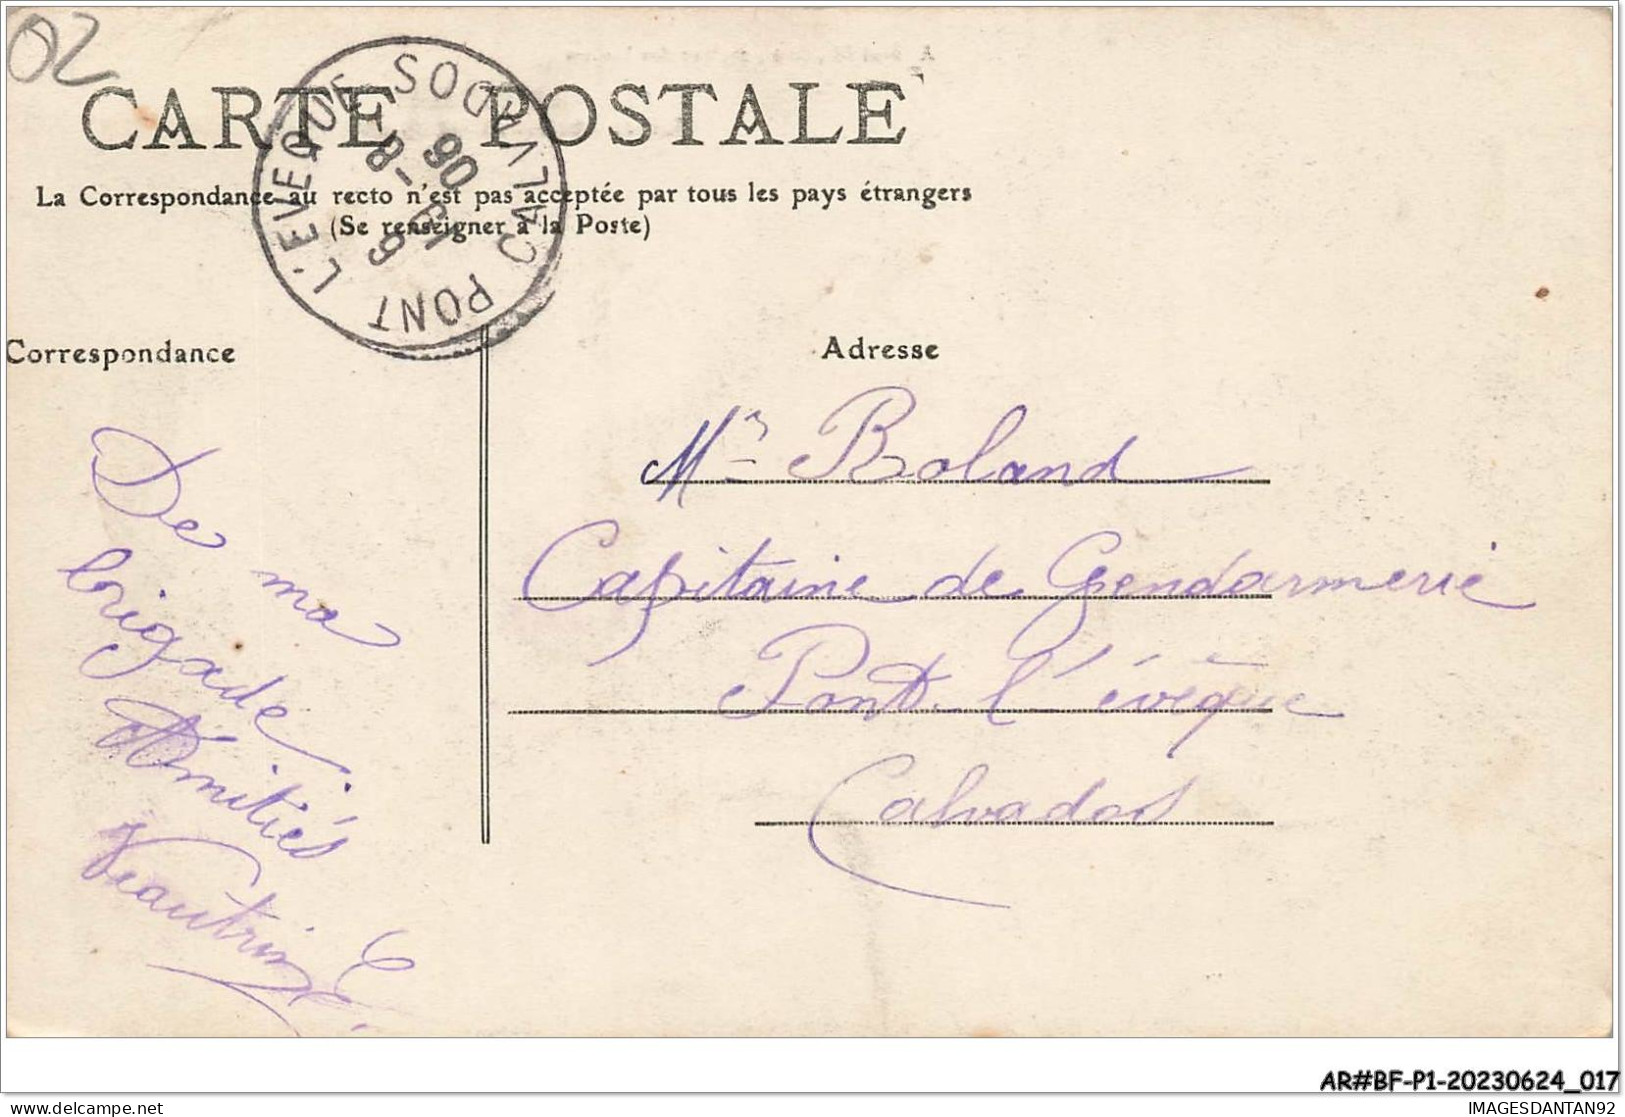 02
CARTE POSTALE
La Correspondance au recto n'est pas acceptée par tous les pays étrangers
(Se renseigner à la Poste)
PONT L'EVEQUE CALVADOS
8-9
06
Correspondance
Adresse
De ma
brigade.
Amitiés
Mr Boland
Capitaine de Gendarmerie
Pont. l'évêque
Calvados
AR#BF-P1-20230624_017
delcampe.net
IMAGESDANTAN92